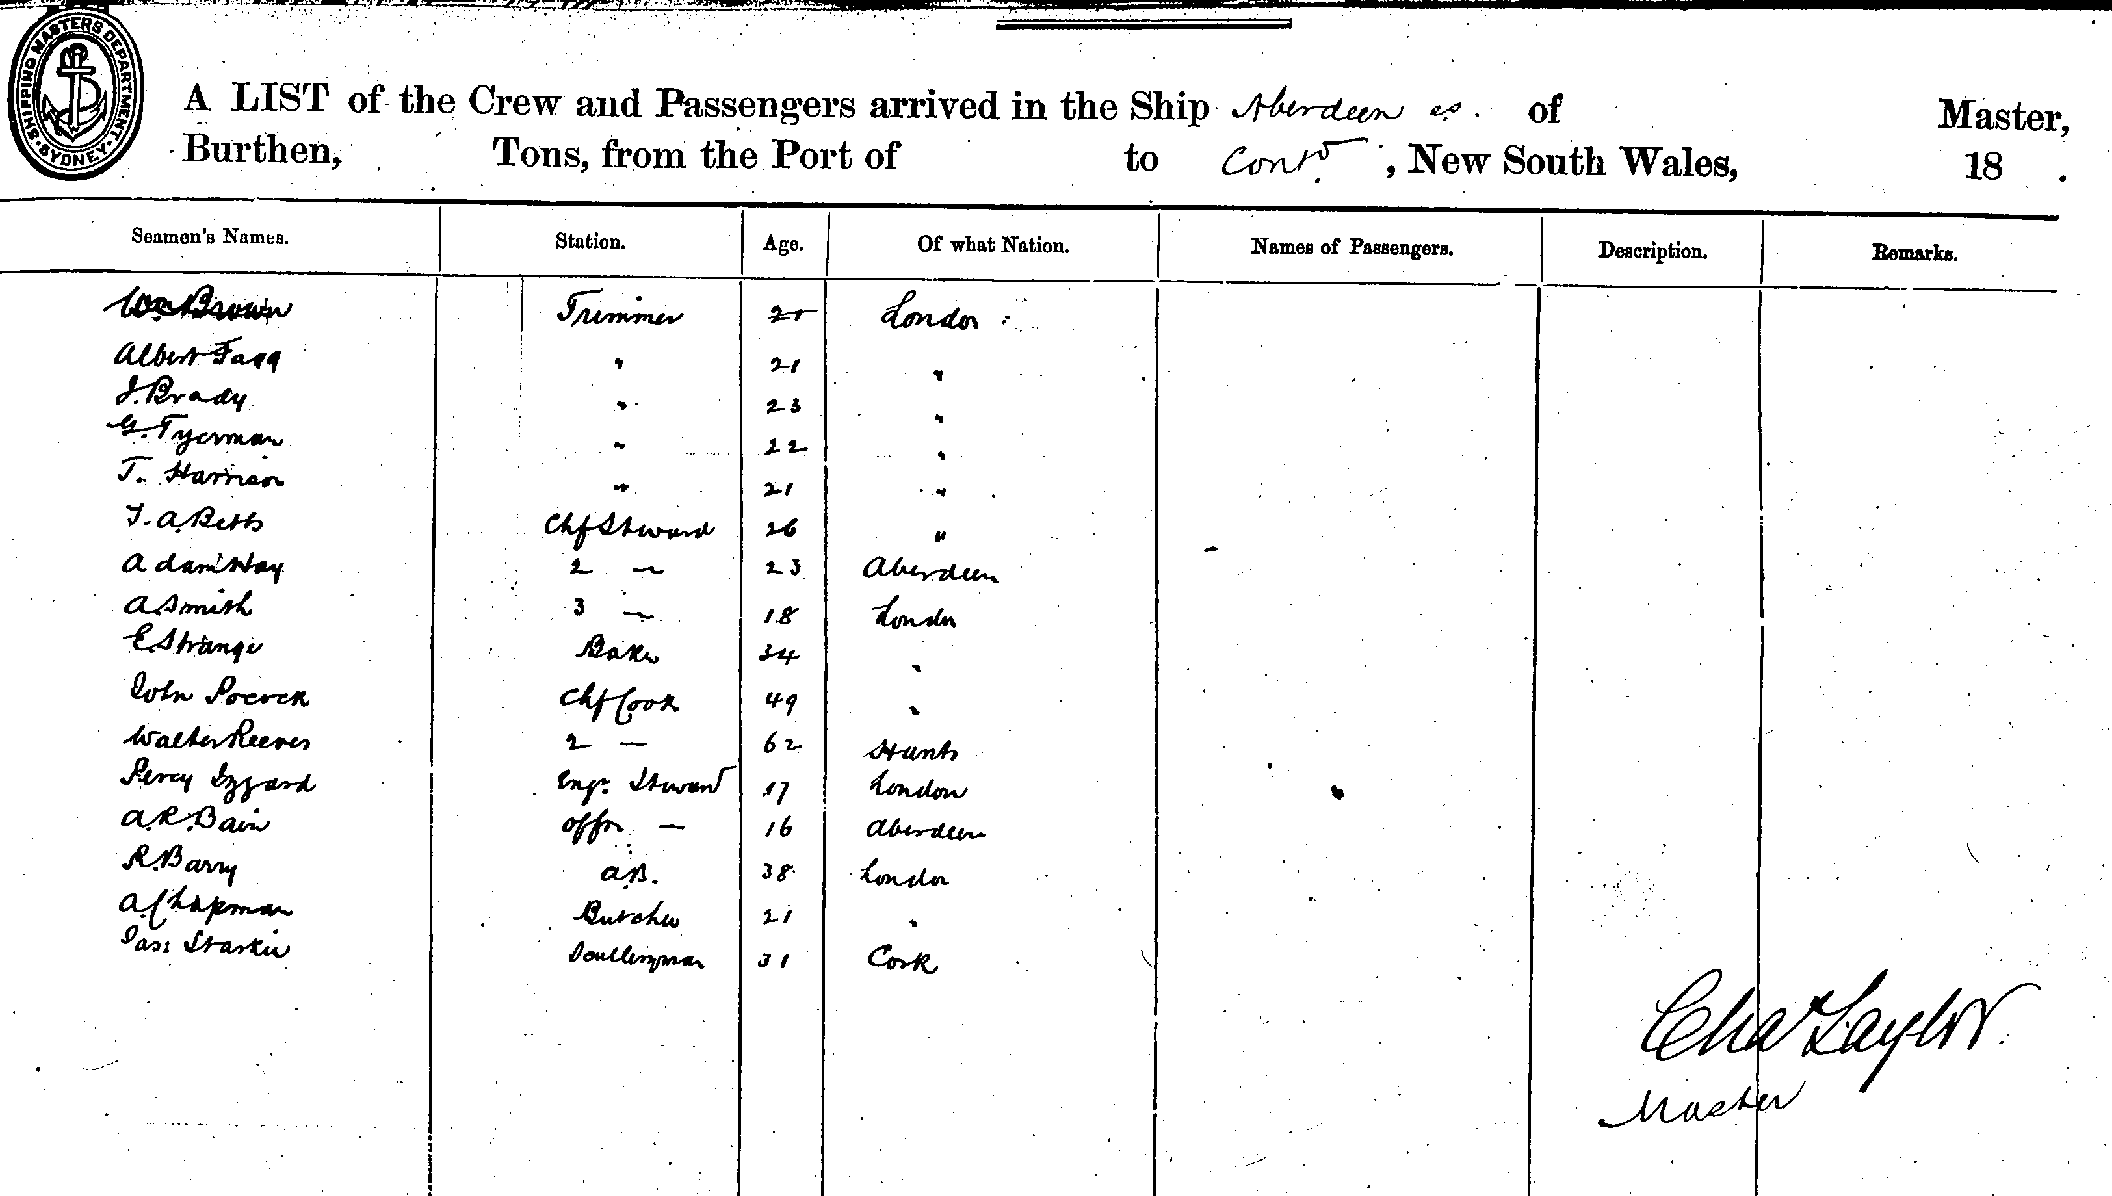 SHIPPING MASTERS DEPARTMENT SYDNEY
A LIST of the Crew and Passengers arrived in the Ship Aberdeen ss. of Master,
Burthen, Tons, from the Port of to Contd., New South Wales, 18 .
Seamen's Names. Station. Age. Of what Nation. Names of Passengers. Description. Remarks.
Wm Brown Trimmer 21 London
Albert Fagg " 21 "
J. Brady " 23 "
G. Tyerman " 22 "
T. Harrison " 21 "
F. A. Betts Chf Steward 26 "
Adam Hay 2 — 23 Aberdeen
A Smith 3 — 18 London
E Strange Baker 34 "
John Pocock Chf Cook 49 "
Walter Reeves 2 — 62 Hants
Percy Izzard Engr. Steward 17 London
A. R. Bain Offr — 16 Aberdeen
R. Barry A.B. 38 London
A. Chapman Butcher 21 "
Jas: Starkie Sculleryman 31 Cork
Chas Taylor
Master